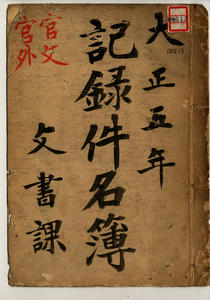 大正五年
記録件名簿
文書課
官文
官外